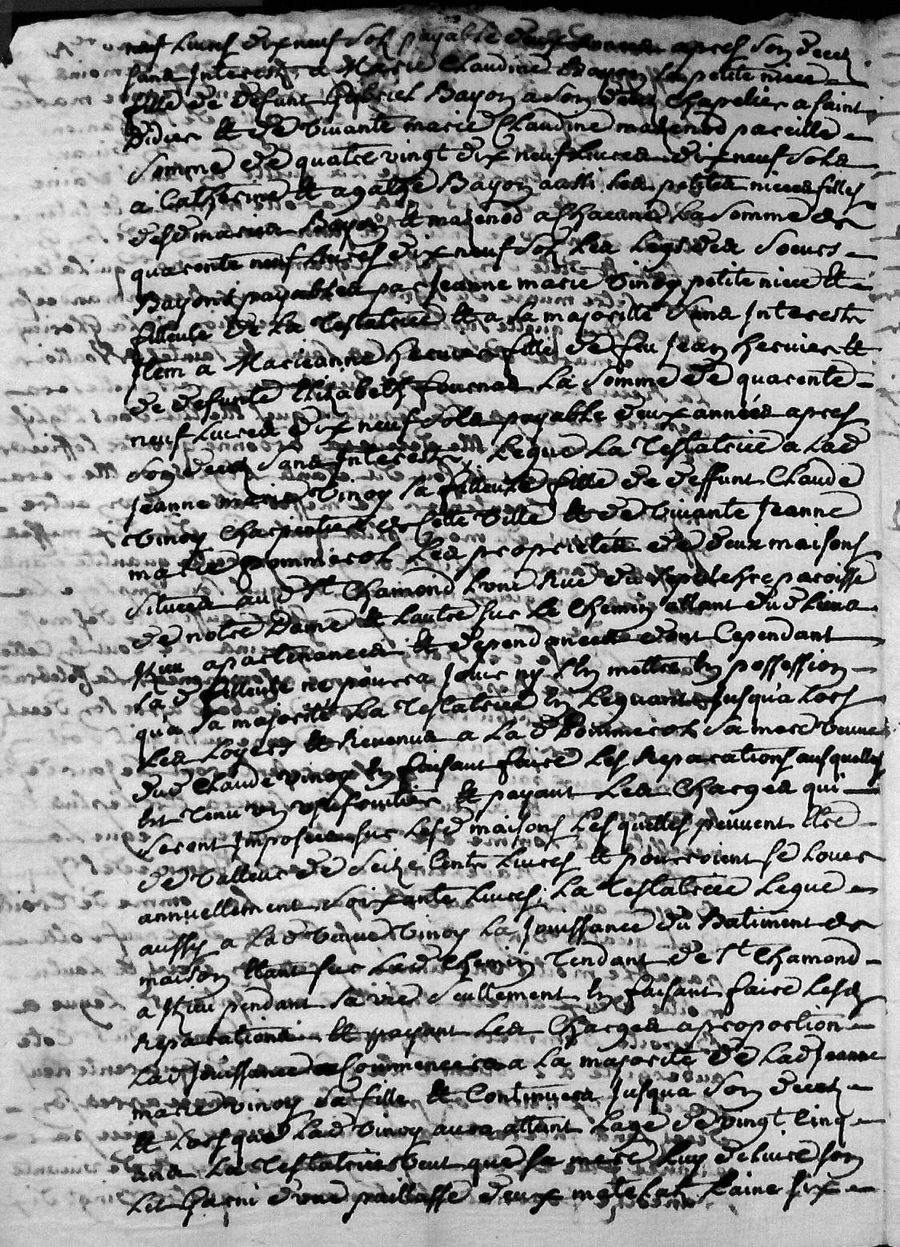 neuf Livres dix neuf sols payable deux années apres son decez
sans Interests, a Marie Claudine Bayon sa petite niece
fille de defunt Gabriel Bayon a son deces Chapelier a saint
Didier et de vivante marie Claudine mazenod pareille
somme de quatre vingt dix neuf Livres dix neuf sols
a Catherine et agathe Bayon aussi ses petites nieces filles
desd mariés Bayon et mazenod a Chacune La somme de
quarente neuf Livres dix neuf sols Les Legs des soeurs
Bayons payables par Jeanne marie Vinoy petite niece et
filleule de La Testatrice et a la majorité sans Interests
Item a Marieanne hervier fille de feu Jean hervier et
de defunte Elizabeth fournas La somme de quarente
neuf Livres dix neuf sols payable deux années apres
son deces sans Interests, Legue La Testatrice a Lad
Jeanne marie Vinoy sa filleule fille de deffunt Claude
Vinoy Charpentier de cette ville et de vivante Jeanne
marie pommerol Les proprietés de deux maisons
situées aud St Chamond L'une Rue du paroisse
de notre Dame et L'autre sur Le Chemin allant dud Lieu a
Rieu apartenances et dependances dont Cependant
Lad filleule ne pourra Jouir ny s'en mettre en possession
qu'a sa majorité La Testatrice En Leguant Jusqu'a Lors
Les Loyers et Revenus a La d Pommerol sa mere veuve
dud Claude Vinoy En faisant faire Les Reparations ausquelles
Est tenu un usufruitier et payant Les Charges qui
seront Imposées sur Lesd maisons Lesquelles peuvent Etre
de valleur de seize Cents Livres et pourroient se Louer
annuellement soixante Livres, La Testatrice Legue
aussy a Lad veuve Vinoy La Jouissance du Batiment de
maison Etant sur Lad Chemin Tendant de St Chamond
a Rieu pendant sa vie seullement En faisant faire Lesd
Reparations et payant Les Charges a proportion
Lad Jouissance Commencera a La majorité de Lad Jeanne
marie Vinoy sa fille et Continuera Jusqu'a son decez
et Lorsque Lad Vinoy aura attaint L'age de vingt Cinq
ans La Testatrice veut que sa mere Luy delivre son
Lit Garni d'une paillasse deux matelats Laine six